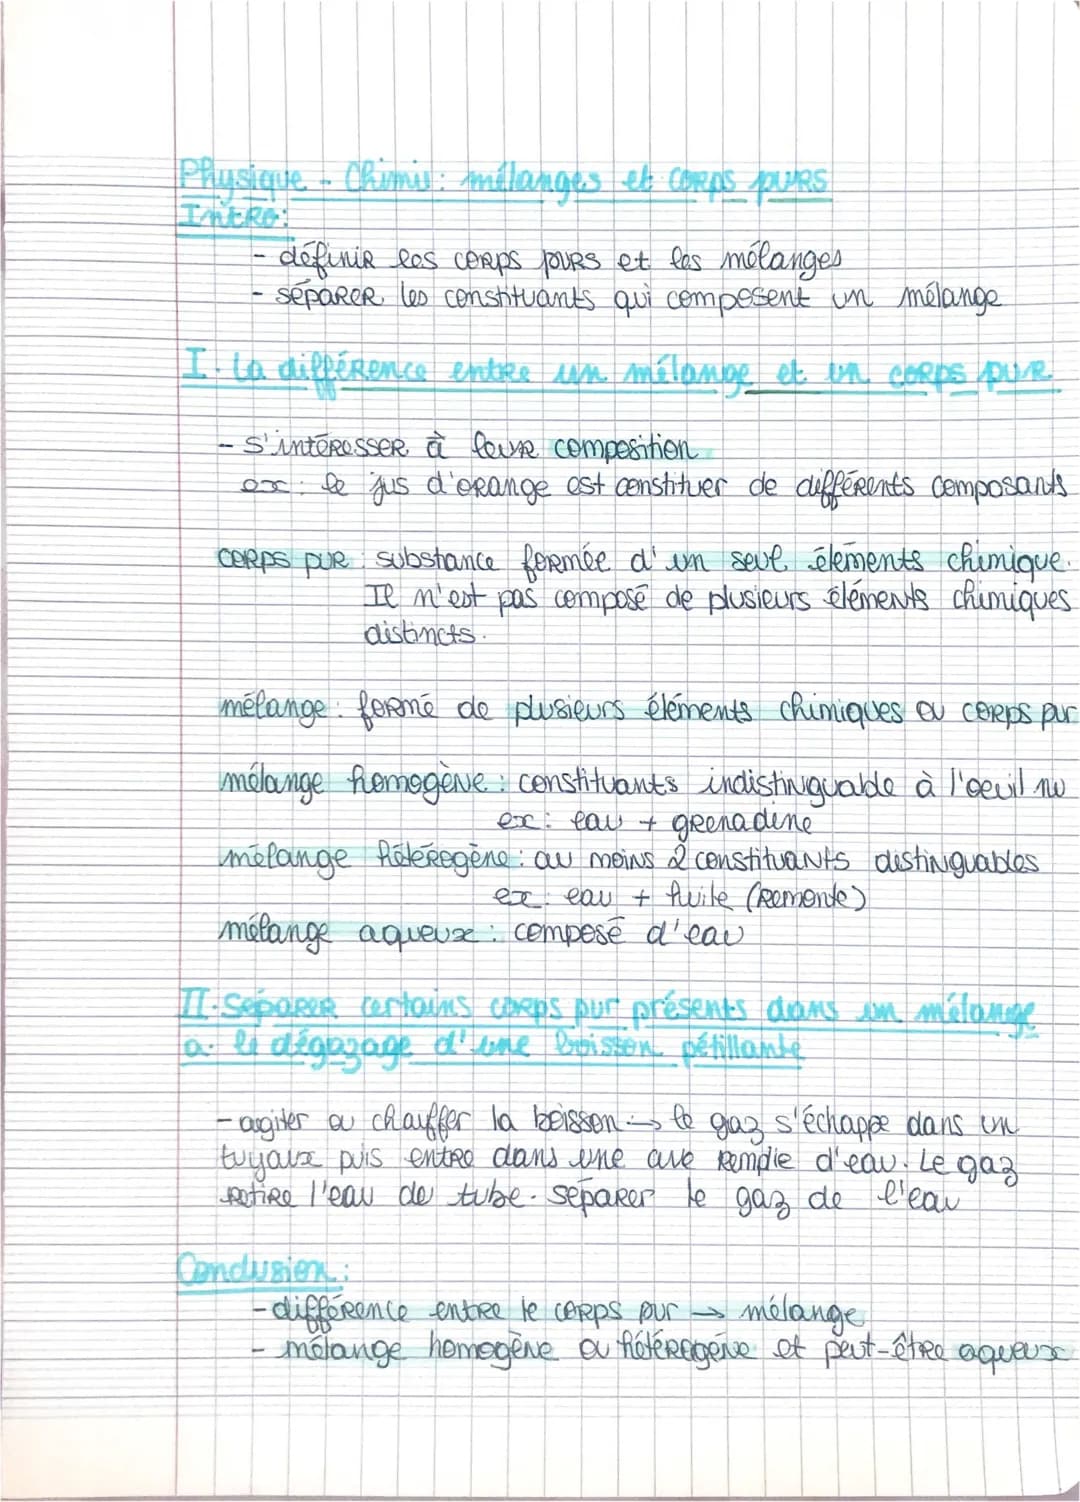 Physique - Chimie: mélanges et corps purs
Intro:
- définir les corps purs et les mélanges
- séparer les constituants qui composent un mélange
I. La différence entre un mélange et un corps pur
- s'intéresser à leure composition
ex: le jus d'orange est constituer de différents composants
corps pur : substance formée d'un seul éléments chimique.
Il n'est pas composé de plusieurs éléments chimiques
distincts.
mélange : formé de plusieurs éléments chimiques ou corps pur
mélange homogène : constituants indistinguable à l'oeuil nu
ex: eau + grenadine
mélange hétérogène : au moins 2 constituants distinguables
ex: eau + huile (remonte)
mélange aqueux : composé d'eau
II. Séparer certains corps pur présents dans un mélange
a. le dégazage d'une boisson pétillante
- agiter ou chauffer la boisson → le gaz s'échappe dans un
tuyaux puis entre dans une cuve remplie d'eau. Le gaz
retire l'eau de tube. séparer le gaz de l'eau
Conclusion :
- différence entre le corps pur → mélange
- mélange homogène ou hétérogène et peut-être aqueux